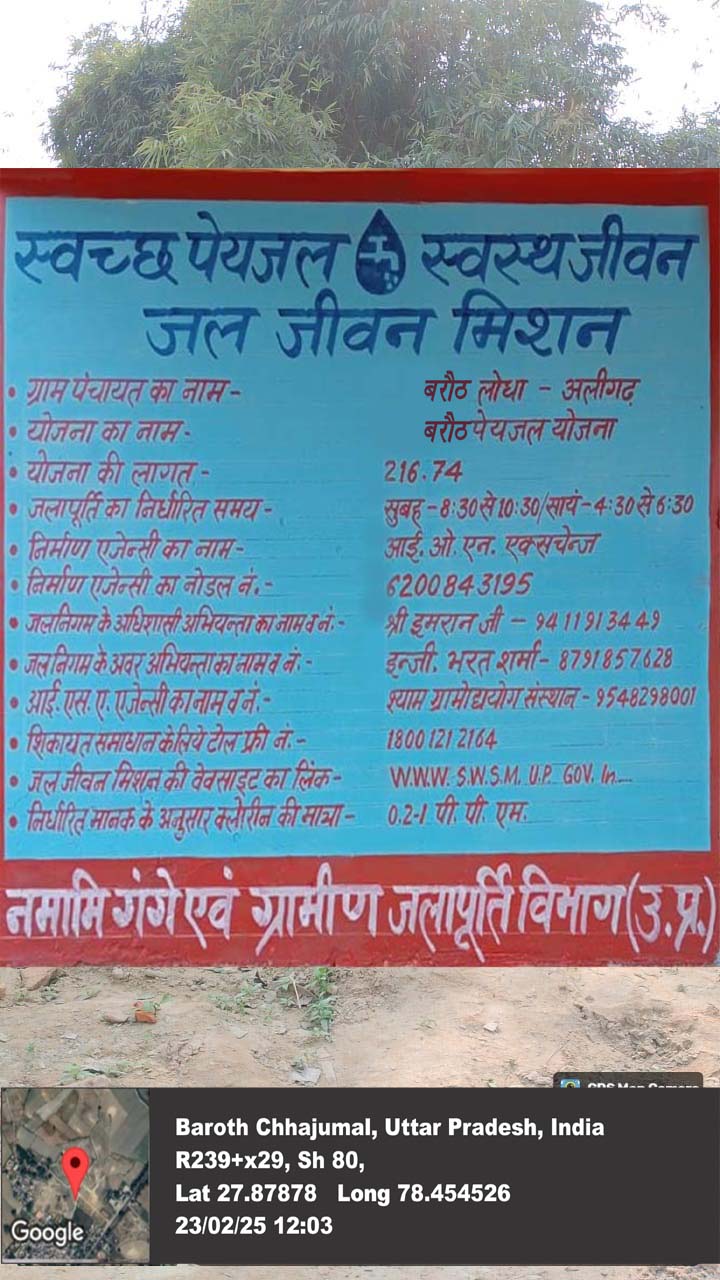 स्वच्छ पेयजल स्वस्थ जीवन
जल जीवन मिशन
• ग्राम पंचायत का नाम - बरौठ लोधा - अलीगढ़
• योजना का नाम - बरौठ पेयजल योजना
• योजना की लागत - 216.74
• जलापूर्ति का निर्धारित समय - सुबह - 8:30 से 10:30/सायं - 4:30 से 6:30
• निर्माण एजेन्सी का नाम - आई. ओ. एन. एक्सचेन्ज
• निर्माण एजेन्सी का नोडल नं. - 6200843195
• जलनिगम के अधिशासी अभियन्ता का नाम व नं. - श्री इमरान जी - 9411913449
• जलनिगम के अवर अभियन्ता का नाम व नं. - इन्जी. भरत शर्मा - 8791857628
• आई. एस. ए. एजेन्सी का नाम व नं. - श्याम ग्रामोद्ययोग संस्थान - 9548298001
• शिकायत समाधान के लिये टोल फ्री नं. - 1800 121 2164
• जल जीवन मिशन की वेवसाइट का लिंक - W.W.W. S.W.S.M. U.P. GOV. In
• निर्धारित मानक के अनुसार क्लोरीन की मात्रा - 0.2-1 पी. पी. एम.
नमामि गंगे एवं ग्रामीण जलापूर्ति विभाग (उ.प्र.)
GPS Map Camera
Baroth Chhajumal, Uttar Pradesh, India
R239+x29, Sh 80,
Lat 27.87878 Long 78.454526
23/02/25 12:03
Google